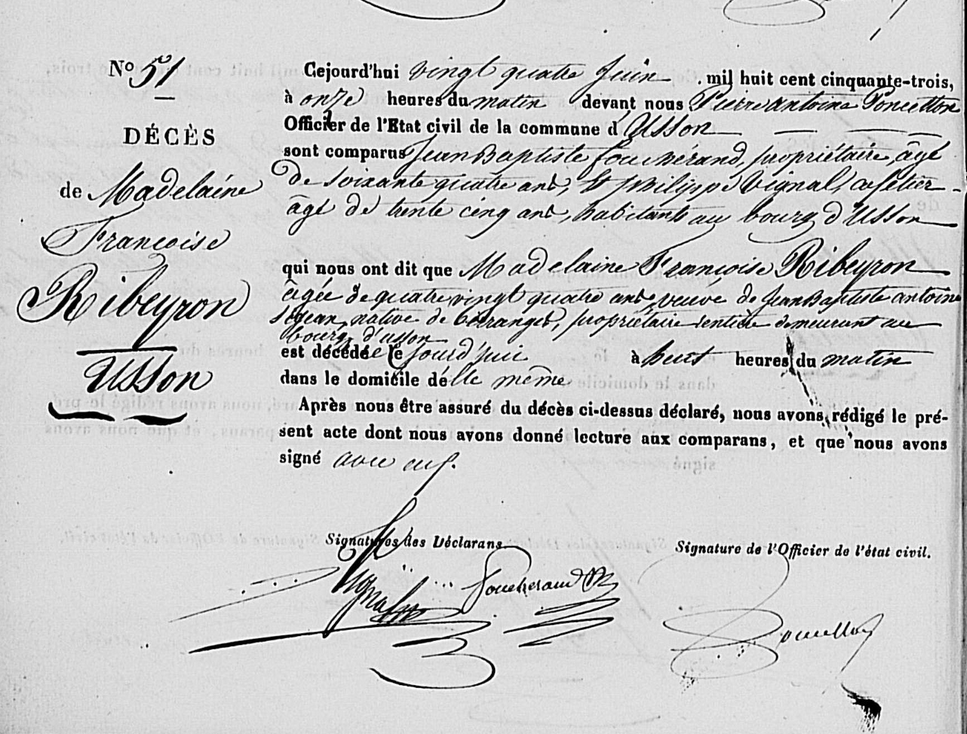 No 51
DÉCÈS
de Madelaine
Françoise
Ribeyron
Usson
Cejourd'hui vingt quatre Juin mil huit cent cinquante-trois,
à onze heures du matin devant nous Pierre Antoine Poncetton
Officier de l'Etat civil de la commune d'Usson
sont comparus Jean Baptiste Foucherand, propriétaire, âgé
de soixante quatre ans, et Philippe Vignal, cafetier
âgé de trente cinq ans, habitants au bourg d'Usson
qui nous ont dit que Madelaine Françoise Ribeyron
âgée de quatre vingt quatre ans veuve de Jean Baptiste antoine
native de propriétaire rentière demeurant au
bourg d'usson
est décédée ce jourd'hui à huit heures du matin
dans le domicile d'elle même
Après nous être assuré du décès ci-dessus déclaré, nous avons rédigé le pré-
sent acte dont nous avons donné lecture aux comparans, et que nous avons
signé avec eux.
Signatures des Déclarans
Signature de l'Officier de l'état civil.
Vignal Foucherand
Poncetton